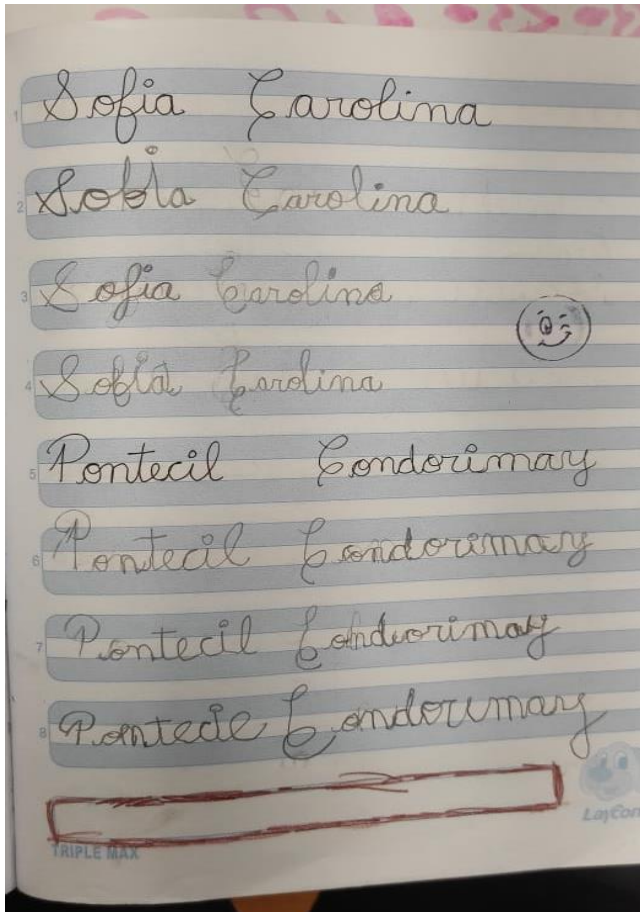 1 Sofia Carolina
2 Sobia Carolina
3 Sofia Carolina
4 Sofia Carolina
5 Pontecil Condorimay
6 Pontecil Condorimay
7 Pontecil Conduorimay
8 Pontecil Condorimay
TRIPLE MAX